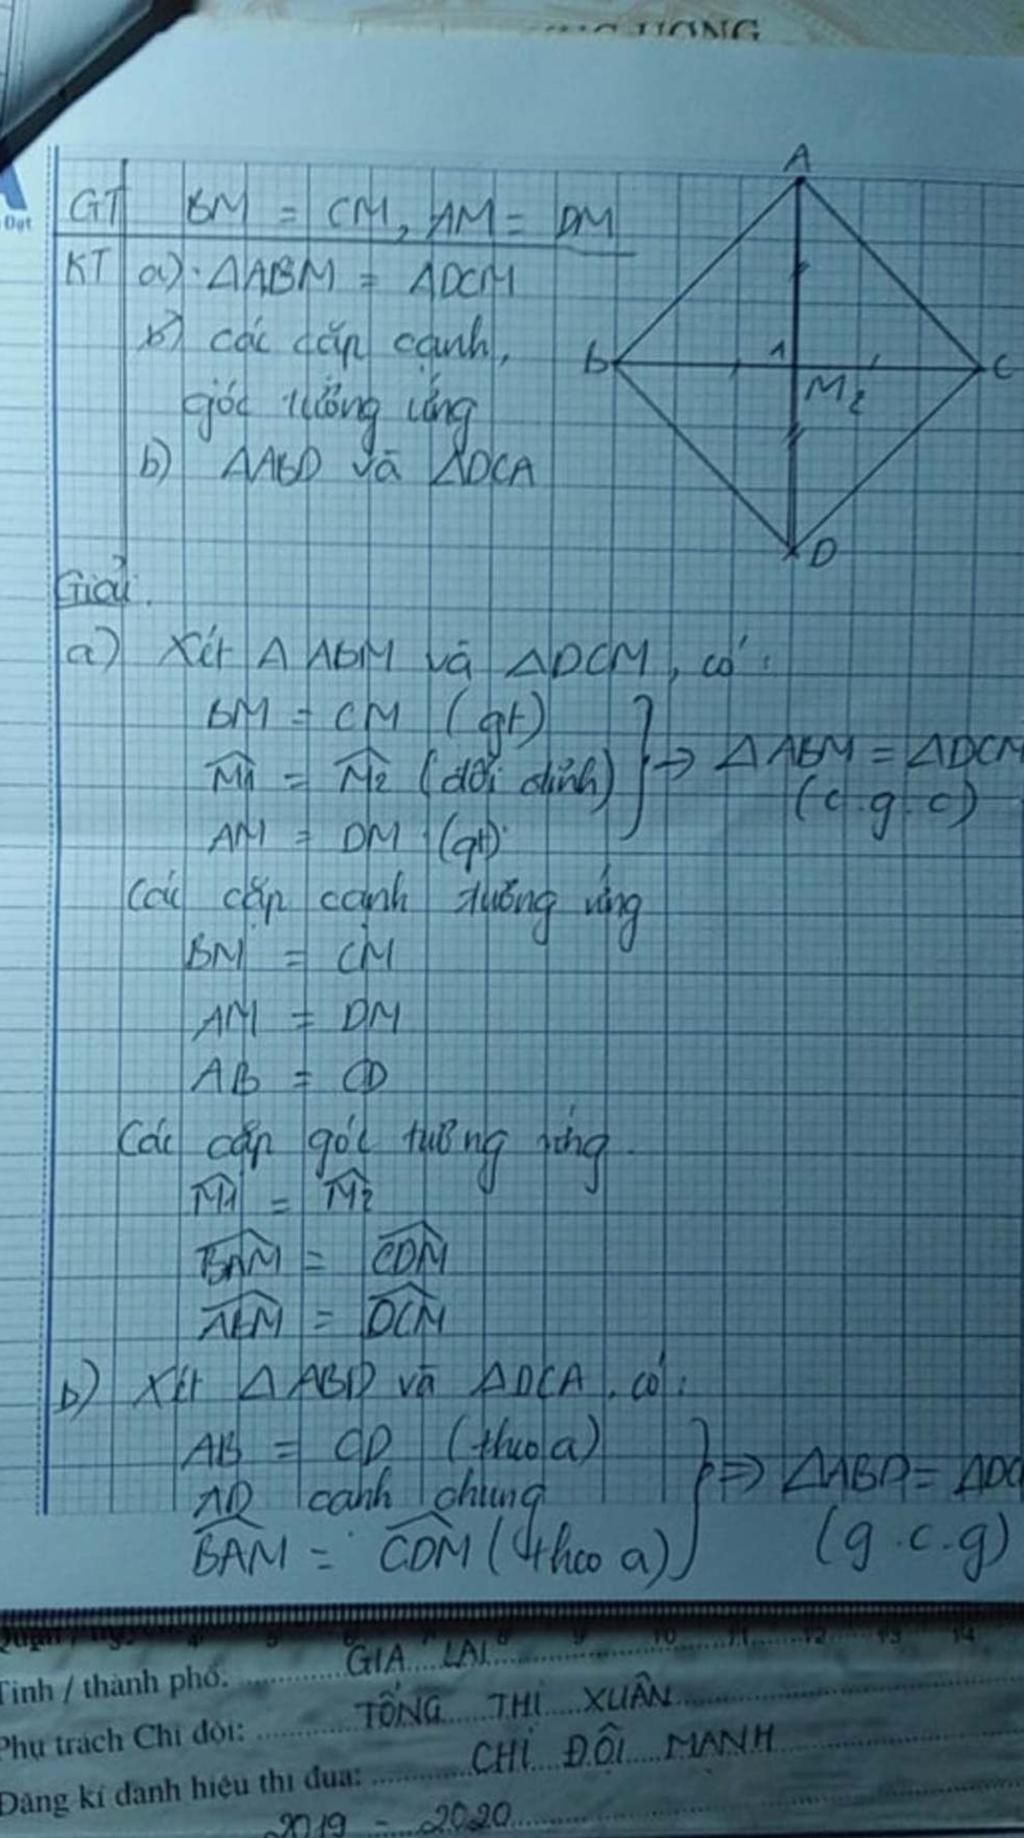 GT BM = CM, AM = DM
KT a) ΔABM = ΔDCM
b) các cặp cạnh,
góc tương ứng
b) ΔABD và ΔDCA
A
B
1
M2
C
D
Giải.
a) Xét ΔABM và ΔDCM, có:
BM = CM (gt)
M1 = M2 (đối đỉnh)
AM = DM (gt)
⇒ ΔABM = ΔDCM
(c.g.c)
Các cặp cạnh tương ứng
BM = CM
AM = DM
AB = CD
Các cặp góc tương ứng.
M1 = M2
BAM = CDM
ABM = DCM
b) Xét ΔABD và ΔDCA, có:
AB = CD (theo a)
AD cạnh chung
BAM = CDM (theo a)
⇒ ΔABD = ΔDC
(g.c.g)
10 11 12 13 14
Tỉnh / thành phố: GIA LAI
Phụ trách Chi đội: TỐNG THỊ XUÂN
Đăng kí danh hiệu thi đua: CHI ĐỘI MẠNH
2019 - 2020